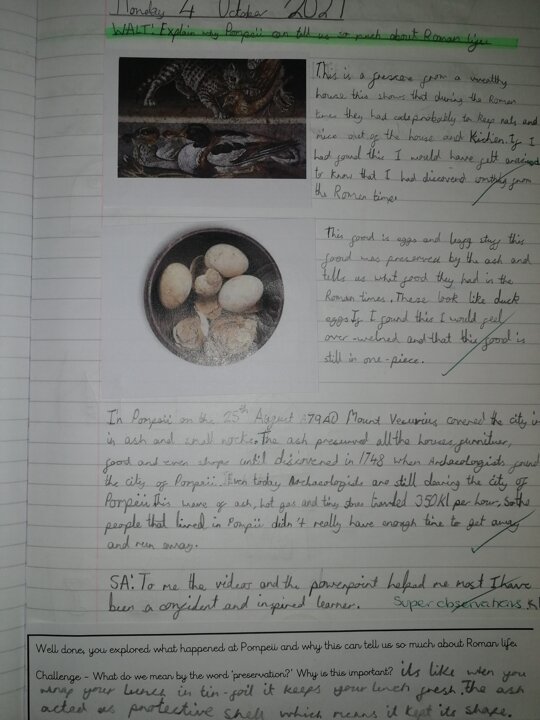 Monday 4 October 2021
WALT: Explain why Pompeii can tell us so much about Roman life.
This is a frescoe from a wealthy
house this shows that during the Roman
times they had cats probably to keep rats and
mice out of the house and kitchen. If I
had found this I would have felt
to know that I had discovered from
the Roman times.
This food is eggs and stuff this
food was preserved by the ash and
tells us what food they had in the
Roman times. These look like duck
eggs If I found this I would feel
over-welmed and that this food is
still in one-piece.
In Pompeii on the 25th August A79AD Mount Vesuvius covered the city in
in ash and small rocks. The ash preserved all the houses, furniture,
food and even shops until discovered in 1748 when Archaeologists found
the city of Pompeii. Even today Archaeologists are still the city of
Pompeii. This wave of ash, hot gas and tiny stones traveled 350Kl per hour, so the
people that lived in Pompeii didn't really have enough time to get away
and run away.
SA: To me the videos and the powerpoint helped me most I have
been a confident and inspired learner. Super observations
Well done, you explored what happened at Pompeii and why this can tell us so much about Roman life.
Challenge - What do we mean by the word 'preservation?' Why is this important? its like wen you
wrap your lunch in tin-foil it keeps your lunch fresh. the ash
acted as protective shell which means it kept its shape.